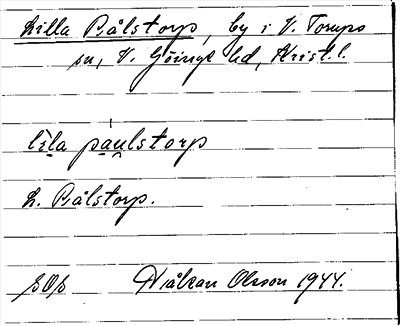 Lilla Bålstorp, by i V. Torups
sn, V. Göinge hd, Krist. l.
lìla paulstorp
L. Bålstorp.
sOp Håkan Olsson 1944.